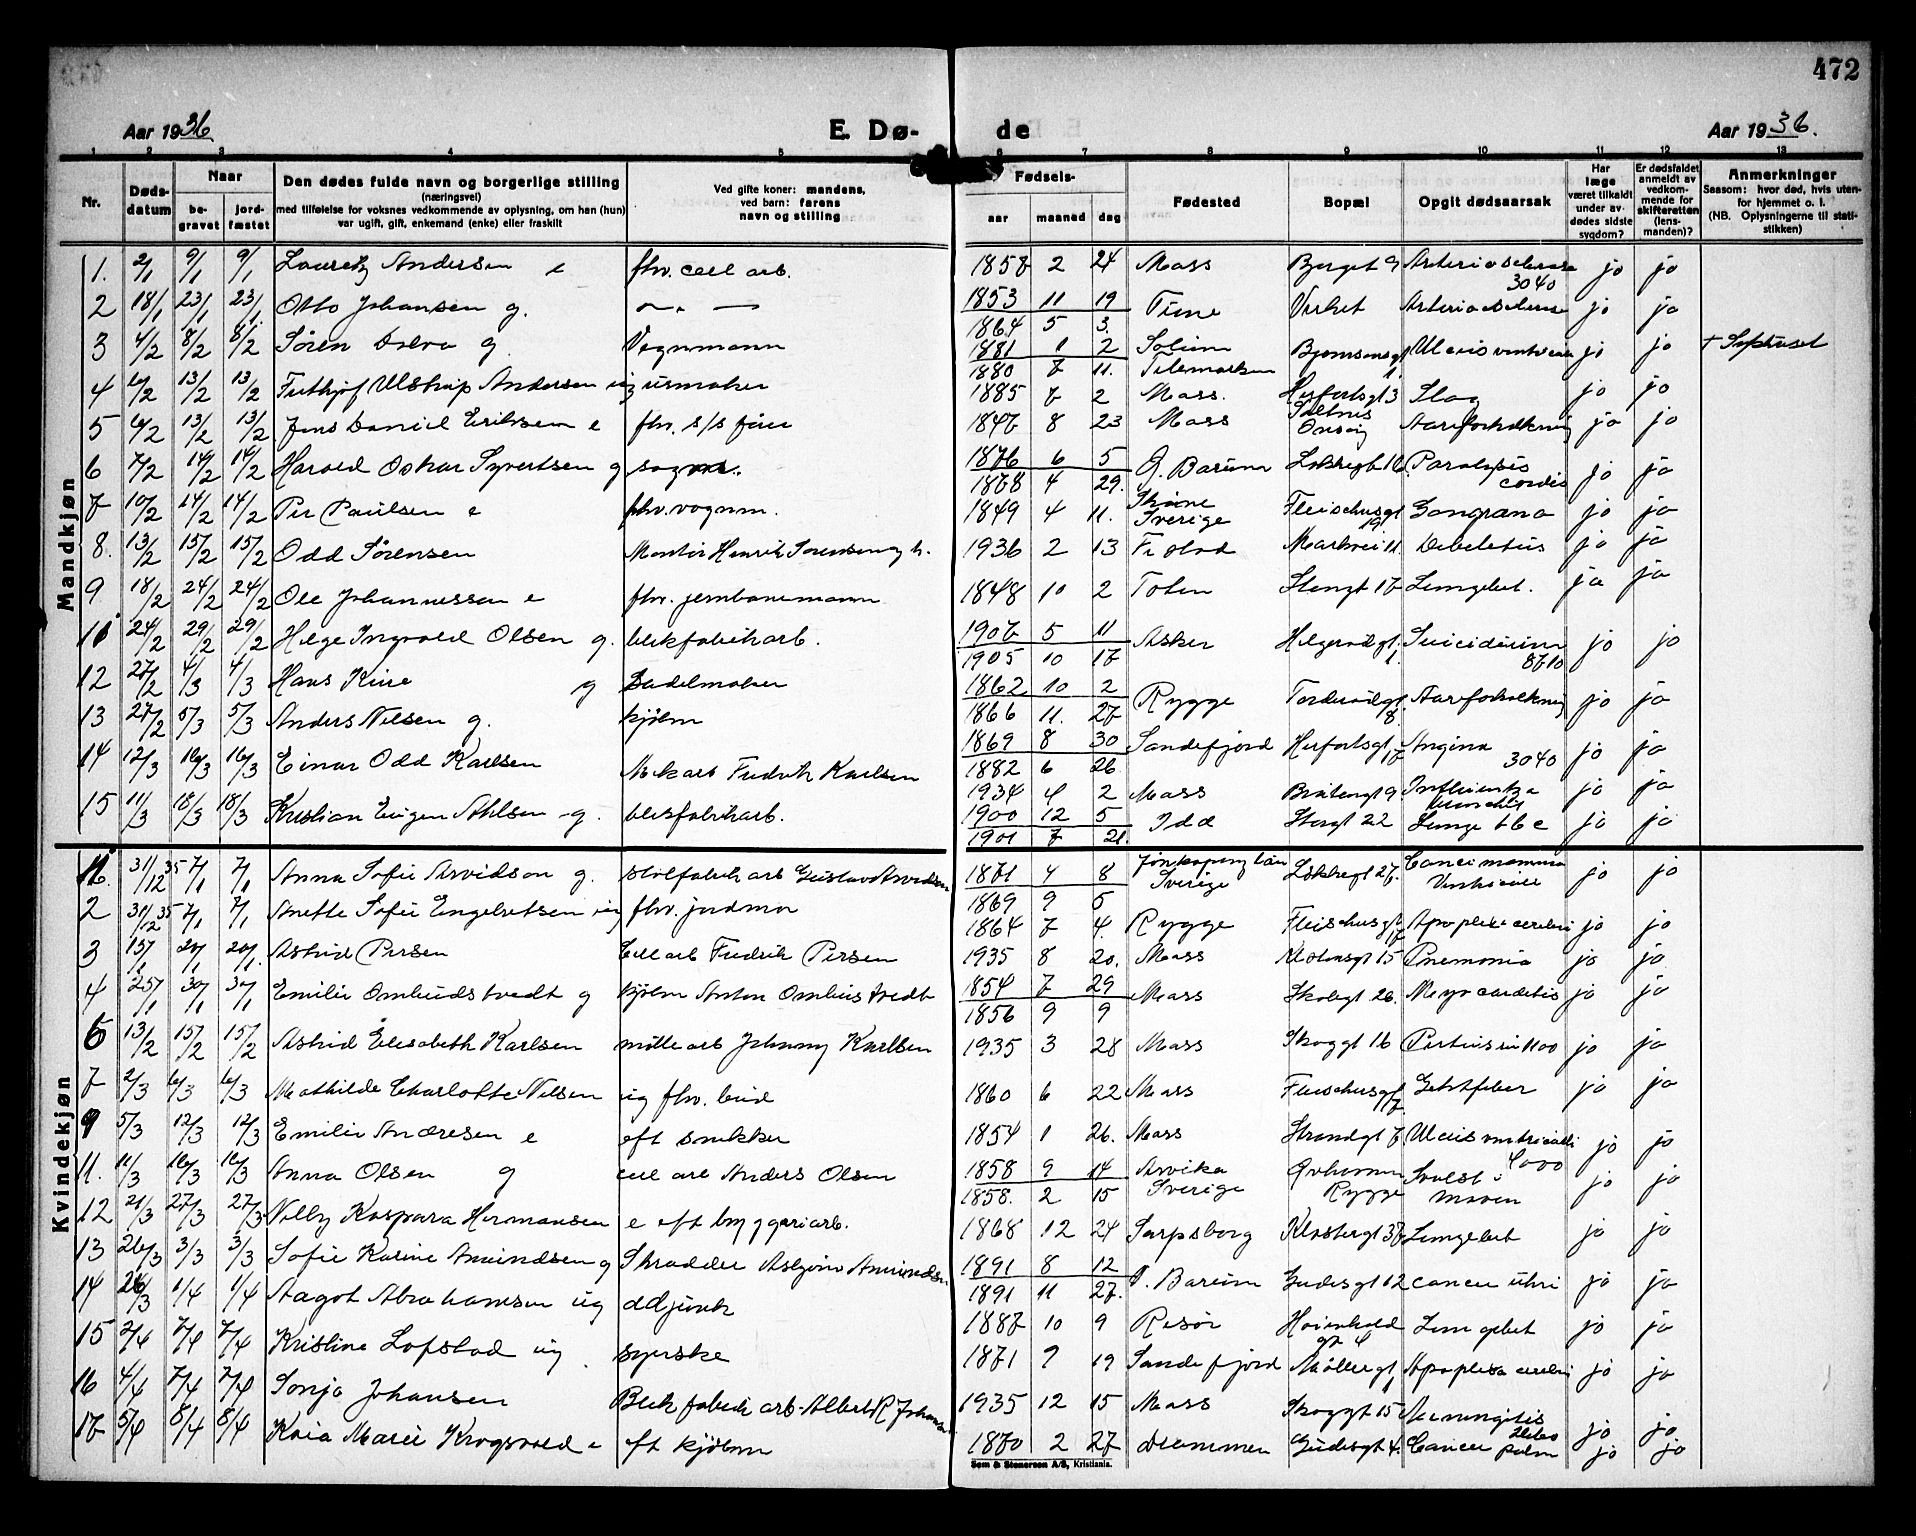 472
Aar 1936
E. Dø-
de
Aar 1936.
1 2 3 4 5 6 7 8 9 10 11 12 13
Nr.
Døds-
datum
Naar
be-
gravet
jord-
fæstet
Den dødes fulde navn og borgerlige stilling
(næringsvei)
med tilføielse for voksnes vedkommende av oplysning, om han (hun)
var ugift, gift, enkemand (enke) eller fraskilt
Ved gifte koner: mandens,
ved barn: farens
navn og stilling
Fødsels-
aar
maaned
dag
Fødested
Bopæl
Opgit dødsaarsak
Har
læge
været tilkaldt
under av-
dødes sidste
sygdom?
Er dødsfaldet
anmeldt av
vedkom-
mende for
skifteretten
(lens-
manden)?
Anmerkninger
Saasom: hvor død, hvis uten-
for hjemmet o. l.
(NB. Oplysningerne til stati-
stikken)
Mandkjøn
1. 2/1 9/1 9/1 Lauretz Andersen e fhv. cell arb. 1858 2 24 Moss Berget 9 Arteriosclerose 3040 jo ja
2 18/1 23/1 23/1 Otto Johansen g. — " — 1853 11 19 Time Verket Arteriosclerose jo ja
1864 5 3.
3 4/2 8/2 8/2 Søren g. Vognmann 1881 1 2 Solum Ulcus ventriculi jo jo
1880 7 11. Telemarken
4 6/2 13/2 13/2 Ulstrup Andersen ug urmaker 1885 7 2 Moss. Herfordsgt 3 Slag jo jo
5 6/2 13/2 13/2 Jens Daniel Eriksen e fhv. s/s 1847 8 23 Moss Onsøy Aareforkalkning ja jo
6 7/2 14/2 14/2 Harald Oskar Syvertsen g 1876 6 5 Ø. Bærum Paralysis cordis jo ja
1878 4 29.
7 10/2 14/2 14/2 Per Paulsen e fhv. vognm. 1849 4 11. Sverige Fleischersgt 19 Gangræna jo ja
8. 13/2 15/2 15/2 Odd Sørensen Montør Henrik Sørensen 1936 2 13 Markvei 11 jo jo
9 18/2 24/2 24/2 Ole Johannessen e fhv. jernbanemann 1848 10 2 Toten Stengt 17 Lungebet. ja ja
11 24/2 29/2 29/2 Helge Ingvald Olsen g. blikfabrikarb. 1907 5 11 Asker Suicidium 8710 jo jo
1905 10 17
12 27/2 4/3 4/3 Hans g Sadelmaker 1862 10 2 Rygge Aareforkalkning jo ja
1866 11. 27
13 27/2 5/3 5/3 Anders Nilsen g. kjøbm 1869 8 30 Sandefjord Herfordsgt 17 Angina 3040 jo jo
1882 6 26
14 12/3 16/3 16/3 Einar Odd Karlsen Mek arb Fredrik Karlsen 1934 4 2 Moss Britengt 9 Influentza jo ja
15 11/3 18/3 18/3 Kristian Eugen Ahlsen g. blikfabrikarb. 1900 12 5 Idd Storgt 22 Lunge tbc jo jo
1901 7 21.
Kvindekjøn
1. 31/12 35 7/1 7/1 Anna Sofie Arvidson g. arb Gustav Arvidson 1871 4 8 Jönkøping län Sverige 27 Cancer mamma jo jo
1869 9 5
2 31/12 35 7/1 7/1 Anette Sofie Engebretsen ug fhv. jordmor 1864 7 4. Rygge Fleischersgt 17 Apoplexi cerebri jo jo
3 15/1 20/1 20/1. Astrid Persen Cell arb Fredrik Persen 1935 8 20. Moss 15 Pnemonia jo jo
4 25/1 30/1 30/1 Emilie Ombudstvedt g kjøbm Anton Ombudstvedt 1854 7 29 Moss Skolegt 26. Myocarditis jo ja
1856 9 9
6 13/2 15/2 15/2 Astrid Elisabeth Karlsen arb Johnny Karlsen 1935 3 28 Moss Skoggt 16 1100 jo jo
7 2/3 6/3 6/3 Mathilde Charlotte Nilsen ug fhv. 1860 6 22 Moss Fleischersgt 17 jo ja
9 5/3 12/3 12/3 Emilie Andresen e eft snekker 1854 1 26. Moss Strandgt 7 Ulcus ventriculi jo jo
11. 11/3 16/3 16/3 Anna Olsen g cell arb Anders Olsen 1858 9 14 Arvika Sverige Rygge Svulst i maven 4000 jo jo
1858. 2 15
12 21/3 27/3 27/3 Nelly Kaspara Hermansen e eft bryggeriarb. 1868 12 24 Sarpsborg Klostergt 37 Lungebet jo jo
13 26/3 3/3 3/3 Sofie Karine Amundsen g Skrædder Asbjørn Amundsen 1891 8 12 Ø. Bærum Gudesgt 12 cancer uteri jo ja
1891 11 27.
14 26/3 1/4 1/4 Aagot Abrahamsen ug 1887 10 9 Risør Lungebet jo jo
15 2/4 7/4 7/4 Kristine Lofstad ug syerske 1871 9 19 Sandefjord Møllergt 1 Apoplexia cerebri jo jo
16 4/4 7/4 7/4 Sonja Johansen Blikfabrik arb. Albert R Johansen 1935 12 15 Moss Skoggt 15 Meningitis jo jo
17 5/4 8/4 8/4 Kaia Marie Krogsvold e eft kjøbm 1870 2 27 Drammen Gudesgt 4. Cancer pulm jo jo
Sem & Stenersen A/S, Kristiania.